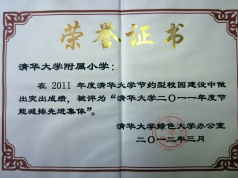 荣誉证书
清华大学附属小学：
在 2011 年度清华大学节约型校园建设中做
出突出成绩，被评为“清华大学二〇一一年度节
能减排先进集体”。
清华大学绿色大学办公室
二〇一二年三月